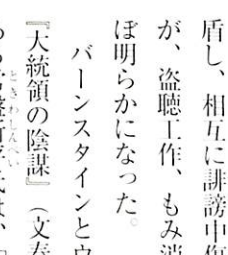 盾し、相互に誹謗中傷
が、盗聴工作、もみ消
ぼ明らかになった。
バーンスタインとウ
『大統領の陰謀』（文春